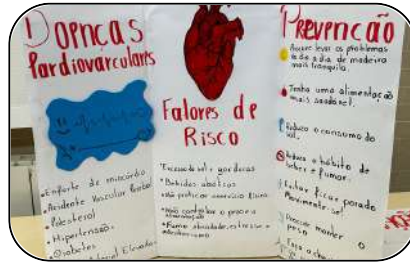 Doenças
Cardiovasculares
Enfarte do miocárdio
Acidente Vascular Cerebral
Colesterol
Hipertensão
Diabetes
Fatores de
Risco
Excesso de sal e gorduras
Bebidas
Não praticar exercício físico
Não controlar o peso e
alimentação
Fumo obesidade, estresse e
Prevenção
levar os problemas
do dia a dia de madeira
mais tranquila.
Tenha uma alimentação
mais saudável.
Reduza o consumo do
sal.
Reduza o hábito de
beber e fumar.
Evitar ficar parado
Movimente-se!
Procure manter o
peso
Faça